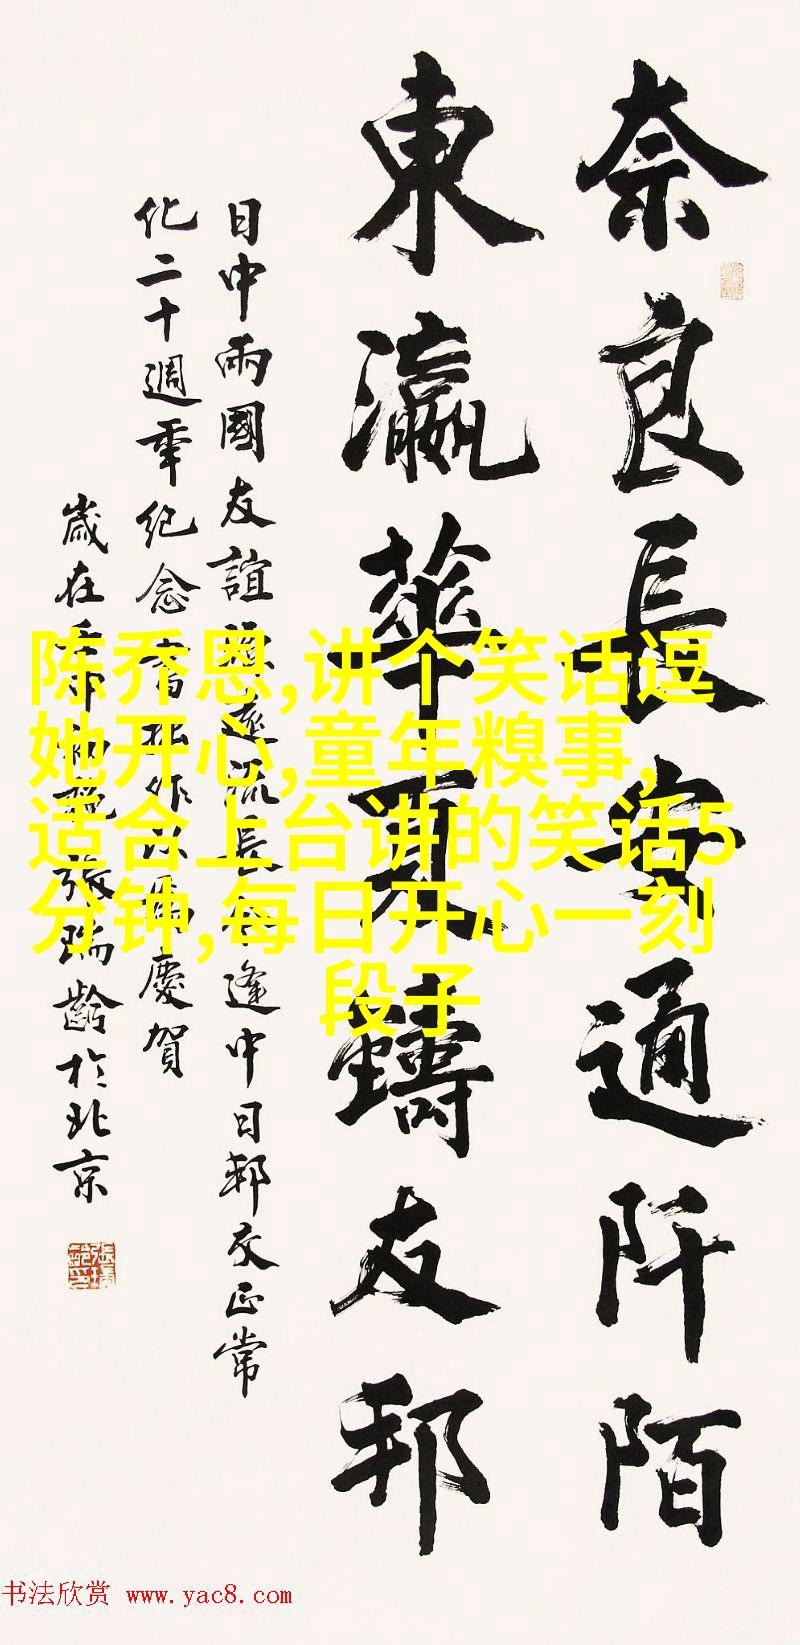 奈良長安通阡陌
東瀛華夏鑄友邦
日中兩國友誼源遠流長今逢中日邦交正常
化二十週年紀念書拙作以為慶賀
歲在壬申初秋張瑞齡於北京
陈乔恩,讲个笑话逗
她开心,童年糗事,
适合上台讲的笑话5
分钟,每日开心一刻
段子
书法欣赏 www.yac8.com